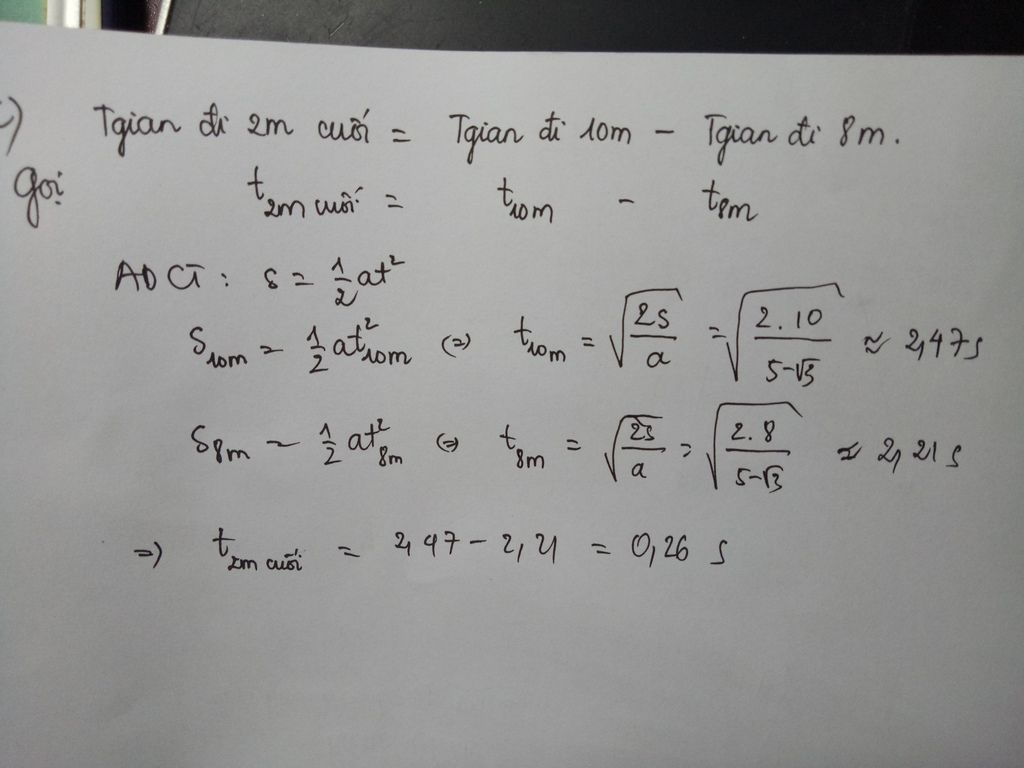 c) Tgian đi 2m cuối = Tgian đi 10m - Tgian đi 8m.
Gọi t2m cuối = t10m - t8m
ADCT: s = 1/2 at²
S10m = 1/2 at²10m (=) t10m = √(2S/a) = √(2.10/(5-√3)) ≈ 2,47s
S8m = 1/2 at²8m (=) t8m = √(2S/a) = √(2.8/(5-√3)) ≈ 2,21s
=) t2m cuối = 2,47 - 2,21 = 0,26 s